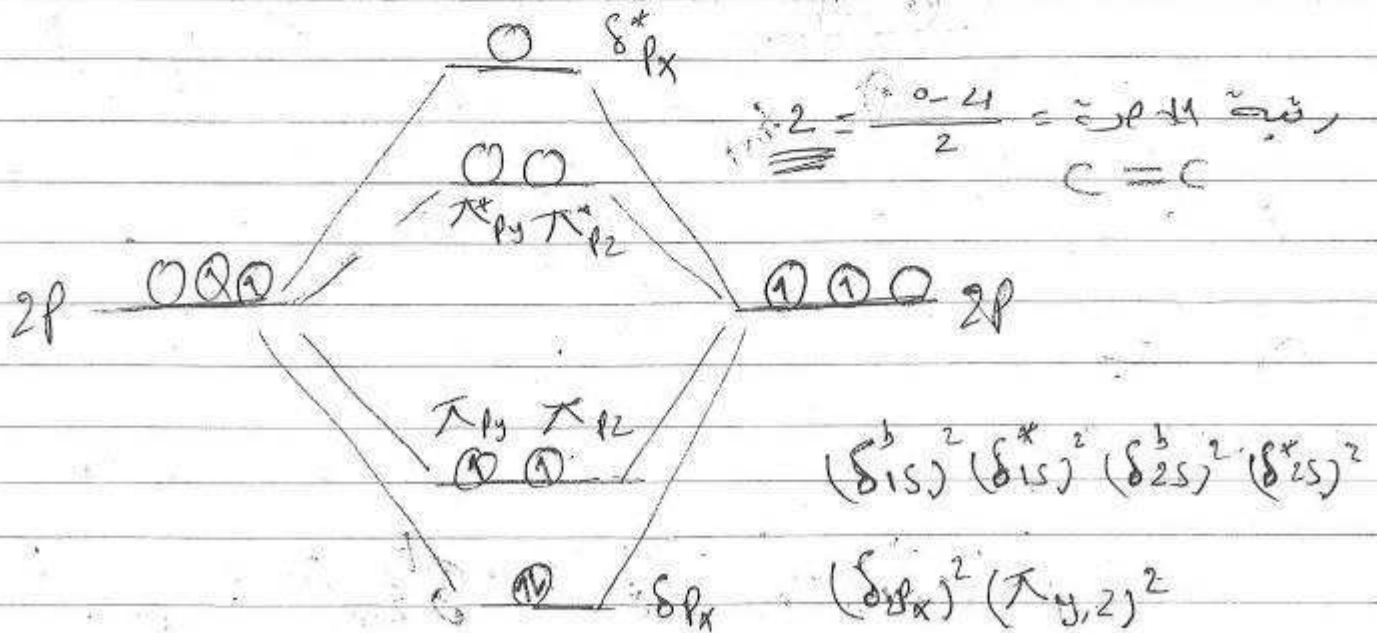 δ*Px
رتبة الآصرة = 4-0/2 = 2
C = C
π*Py π*Pz
2P 2P
πPy πPz
(δᵇ1S)² (δ*1S)² (δᵇ2S)² (δ*2S)²
δPx (δ2Px)² (πy,z)²